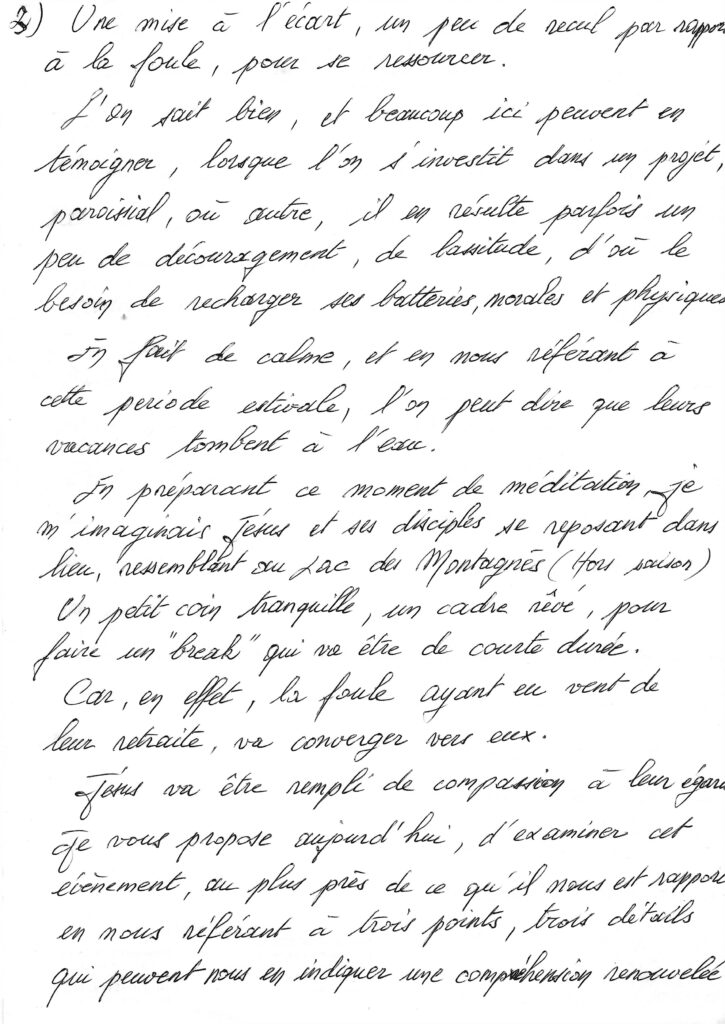 2) Une mise à l'écart, un peu de recul par rappor
à la foule, pour se ressourcer.
L'on sait bien, et beaucoup ici peuvent en
témoigner, lorsque l'on s'investit dans un projet,
paroissial, où autre, il en résulte parfois un
peu de découragement, de lassitude, d'où le
besoin de recharger ses batteries, morales et physiques
En fait de calme, et en nous référant à
cette periode estivale, l'on peut dire que leurs
vacances tombent à l'eau.
En préparant ce moment de méditation, je
m'imaginais Jésus et ses disciples se reposant dans
lieu, ressemblant au Lac des Montagnès (Hors saison)
Un petit coin tranquille, un cadre rêvé, pour
faire un "break" qui va être de courte durée.
Car, en effet, la foule ayant eu vent de
leur retraite, va converger vers eux.
Jésus va être rempli de compassion à leur égar
Je vous propose aujourd'hui, d'examiner cet
évènement, au plus près de ce qu'il nous est rappor
en nous référant à trois points, trois détails
qui peuvent nous en indiquer une compréhension renouvelée